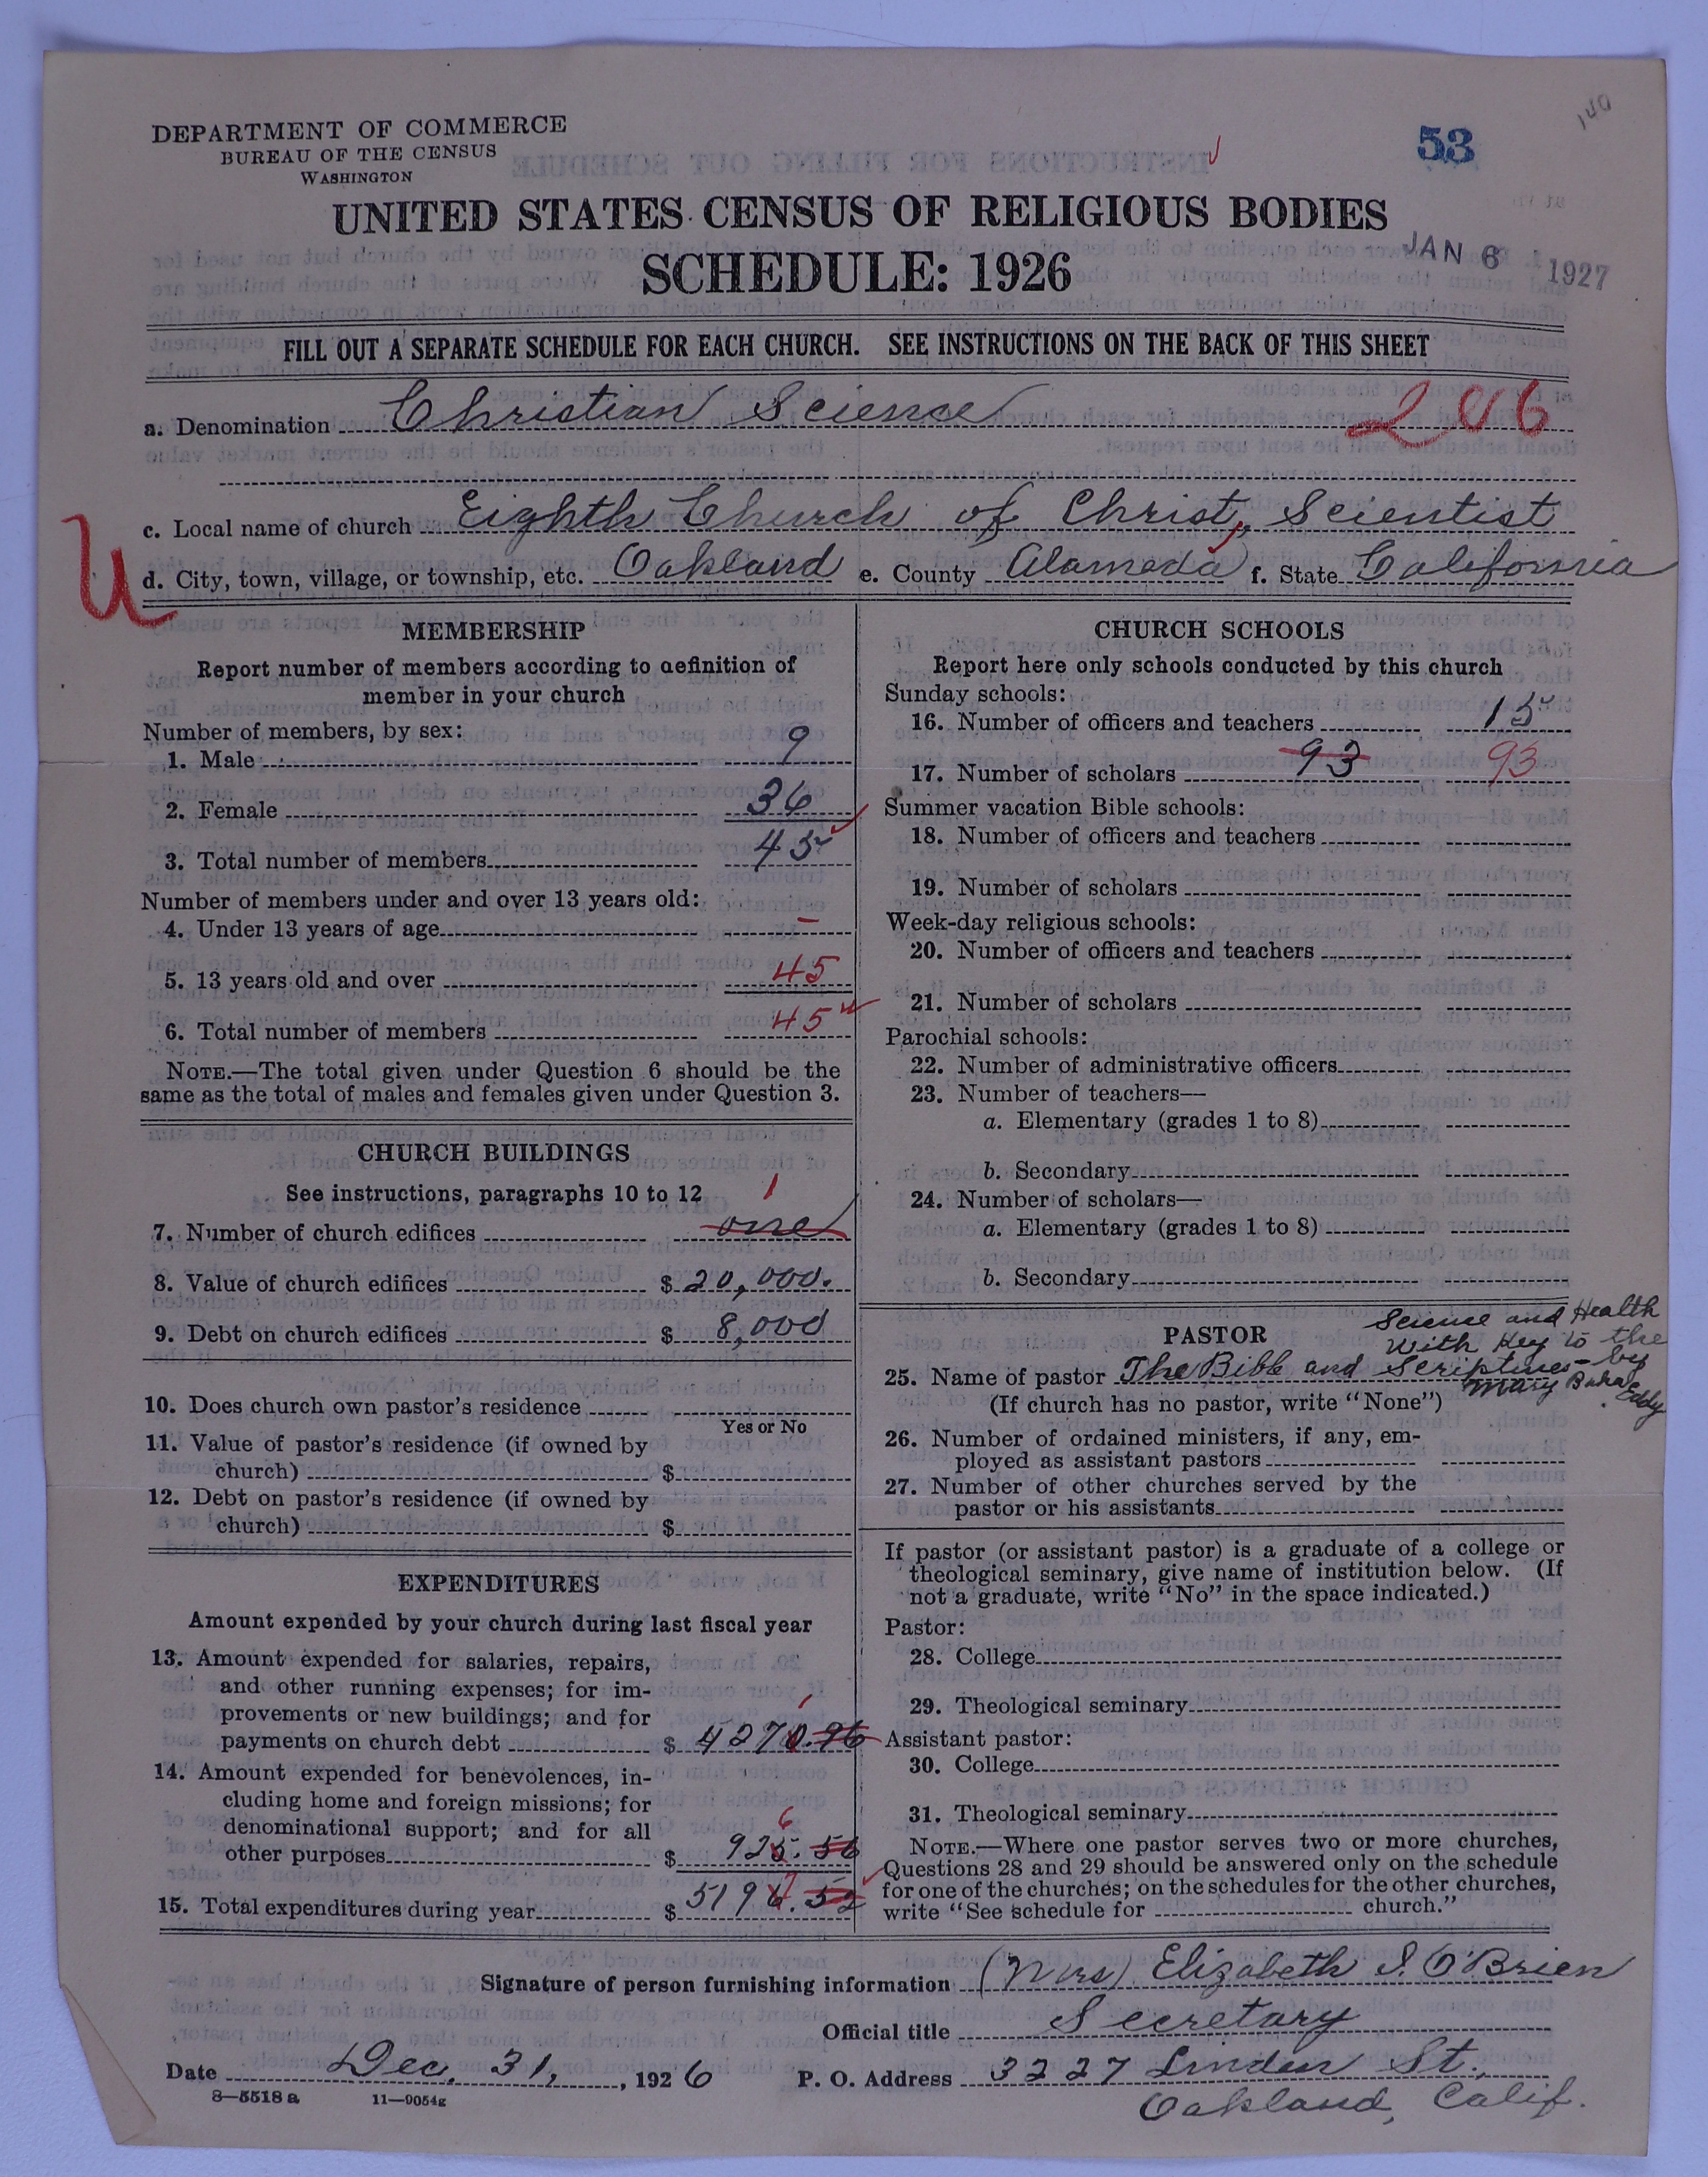 140
DEPARTMENT OF COMMERCE
BUREAU OF THE CENSUS
WASHINGTON
53
UNITED STATES CENSUS OF RELIGIOUS BODIES
SCHEDULE: 1926
JAN 6 1927
FILL OUT A SEPARATE SCHEDULE FOR EACH CHURCH. SEE INSTRUCTIONS ON THE BACK OF THIS SHEET
a. Denomination Christian Science
206
c. Local name of church Eighth Church of Christ, Scientist
U
d. City, town, village, or township, etc. Oakland e. County Alameda f. State California
MEMBERSHIP
Report number of members according to definition of
member in your church
Number of members, by sex:
1. Male 9
2. Female 36
3. Total number of members 45
Number of members under and over 13 years old:
4. Under 13 years of age –
5. 13 years old and over 45
6. Total number of members 45
NOTE.—The total given under Question 6 should be the
same as the total of males and females given under Question 3.
CHURCH BUILDINGS
See instructions, paragraphs 10 to 12
1
7. Number of church edifices one
8. Value of church edifices $ 20,000.
9. Debt on church edifices $ 8,000
10. Does church own pastor's residence
Yes or No
11. Value of pastor's residence (if owned by
church) $
12. Debt on pastor's residence (if owned by
church) $
EXPENDITURES
Amount expended by your church during last fiscal year
13. Amount expended for salaries, repairs,
and other running expenses; for im-
provements or new buildings; and for
1
payments on church debt $ 4270.96
14. Amount expended for benevolences, in-
cluding home and foreign missions; for
denominational support; and for all
6
other purposes $ 925.56
7
15. Total expenditures during year $ 5196.52
CHURCH SCHOOLS
Report here only schools conducted by this church
Sunday schools:
16. Number of officers and teachers 15
17. Number of scholars 93 93
Summer vacation Bible schools:
18. Number of officers and teachers
19. Number of scholars
Week-day religious schools:
20. Number of officers and teachers
21. Number of scholars
Parochial schools:
22. Number of administrative officers
23. Number of teachers—
a. Elementary (grades 1 to 8)
b. Secondary
24. Number of scholars—
a. Elementary (grades 1 to 8)
b. Secondary
PASTOR
Science and Health
With Key to the
25. Name of pastor The Bible and Scriptures – by
Mary Baker Eddy
(If church has no pastor, write "None")
26. Number of ordained ministers, if any, em-
ployed as assistant pastors
27. Number of other churches served by the
pastor or his assistants
If pastor (or assistant pastor) is a graduate of a college or
theological seminary, give name of institution below. (If
not a graduate, write "No" in the space indicated.)
Pastor:
28. College
29. Theological seminary
Assistant pastor:
30. College
31. Theological seminary
NOTE.—Where one pastor serves two or more churches,
Questions 28 and 29 should be answered only on the schedule
for one of the churches; on the schedules for the other churches,
write "See schedule for church."
Signature of person furnishing information (Mrs) Elizabeth S. O'Brien
Official title Secretary
Date Dec. 31, , 1926 P. O. Address 3227 Linden St.,
8—5518 a 11—9054g
Oakland, Calif.